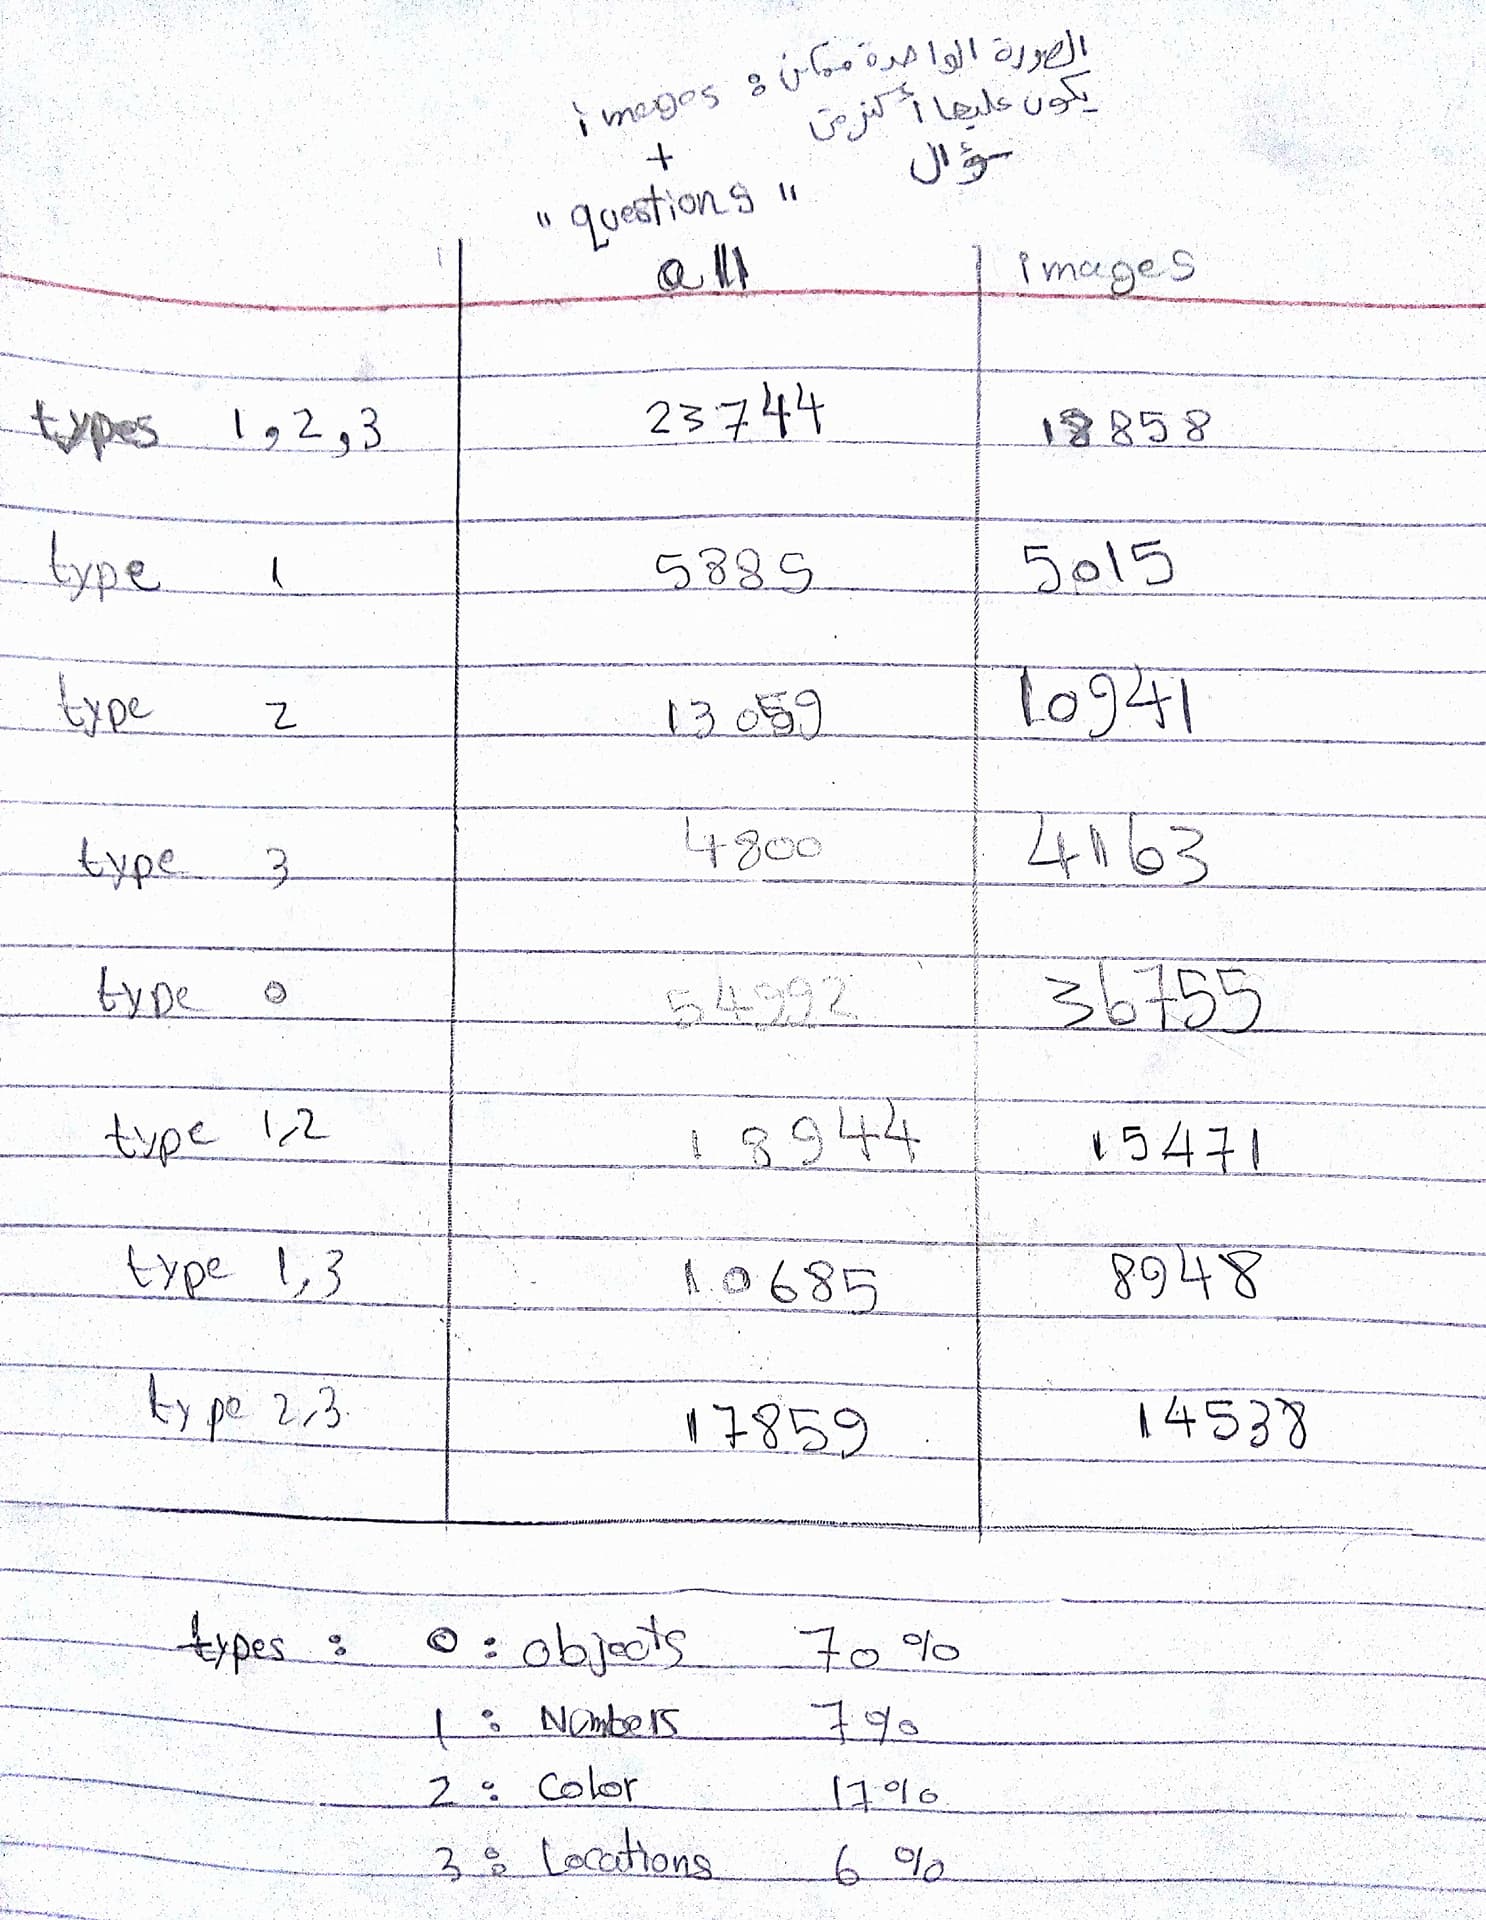 images : الصورة الواحدة ممكن
يكون عليها أكثر من
سؤال
+
"questions"
all images
types 1,2,3 23744 18858
type 1 5885 5015
type 2 13059 10941
type 3 4800 4163
type 0 54992 36755
type 1,2 18944 15471
type 1,3 10685 8948
type 2,3 17859 14538
types : 0 : objects 70%
1 : Numbers 7%
2 : Color 17%
3 : Locations 6%